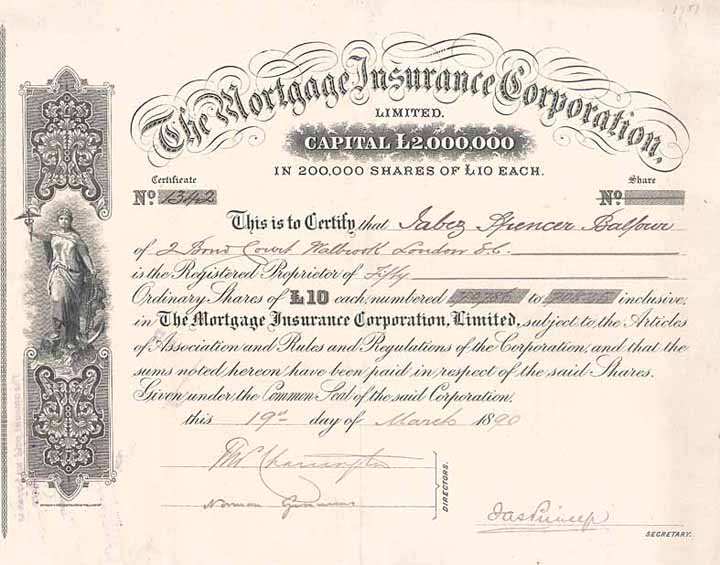 The Mortgage Insurance Corporation,
LIMITED.
CAPITAL £2,000,000
IN 200,000 SHARES OF £10 EACH.
Certificate Share
No. 1342 No.
This is to Certify that Jabez Spencer Balfour
of 2 Bond Court Walbrook London E.C.
is the Registered Proprietor of Fifty
Ordinary Shares of £10 each, numbered to inclusive,
in The Mortgage Insurance Corporation, Limited, subject to the Articles
of Association and Rules and Regulations of the Corporation, and that the
sums noted hereon have been paid in respect of the said Shares.
Given under the Common Seal of the said Corporation.
this 19th day of March 1890
Norman
DIRECTORS.
SECRETARY.